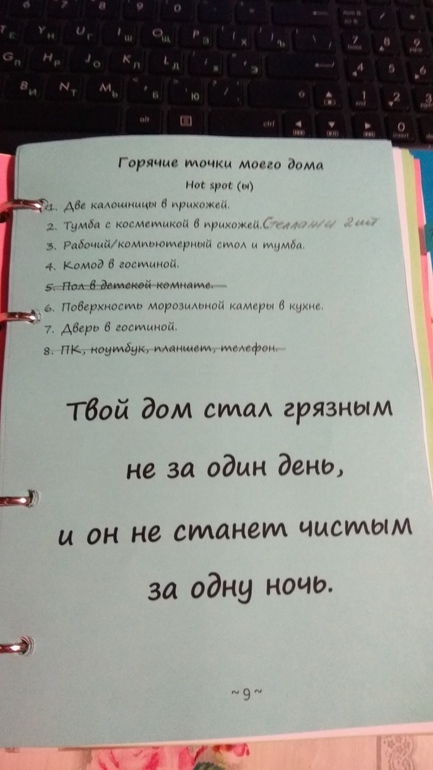 Горячие точки моего дома
Hot spot (ы)
1. Две калошницы в прихожей.
2. Тумба с косметикой в прихожей. Стеллажи 2 шт
3. Рабочий/компьютерный стол и тумба.
4. Комод в гостиной.
5. Пол в детской комнате.
6. Поверхность морозильной камеры в кухне.
7. Дверь в гостиной.
8. ПК, ноутбук, планшет, телефон.
Твой дом стал грязным
не за один день,
и он не станет чистым
за одну ночь.
~9~